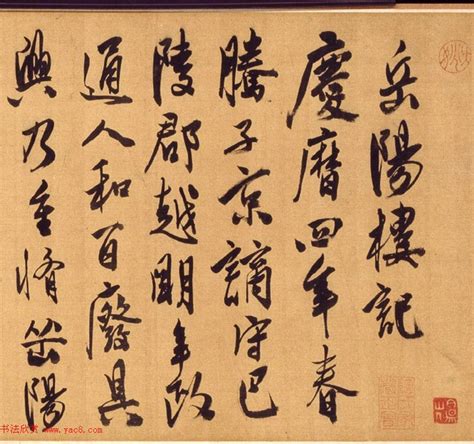 岳陽樓記
慶曆四年春
滕子京謫守巴
陵郡越明年政
通人和百廢具
興乃重脩岳陽
书法欣赏 www.yac8.com